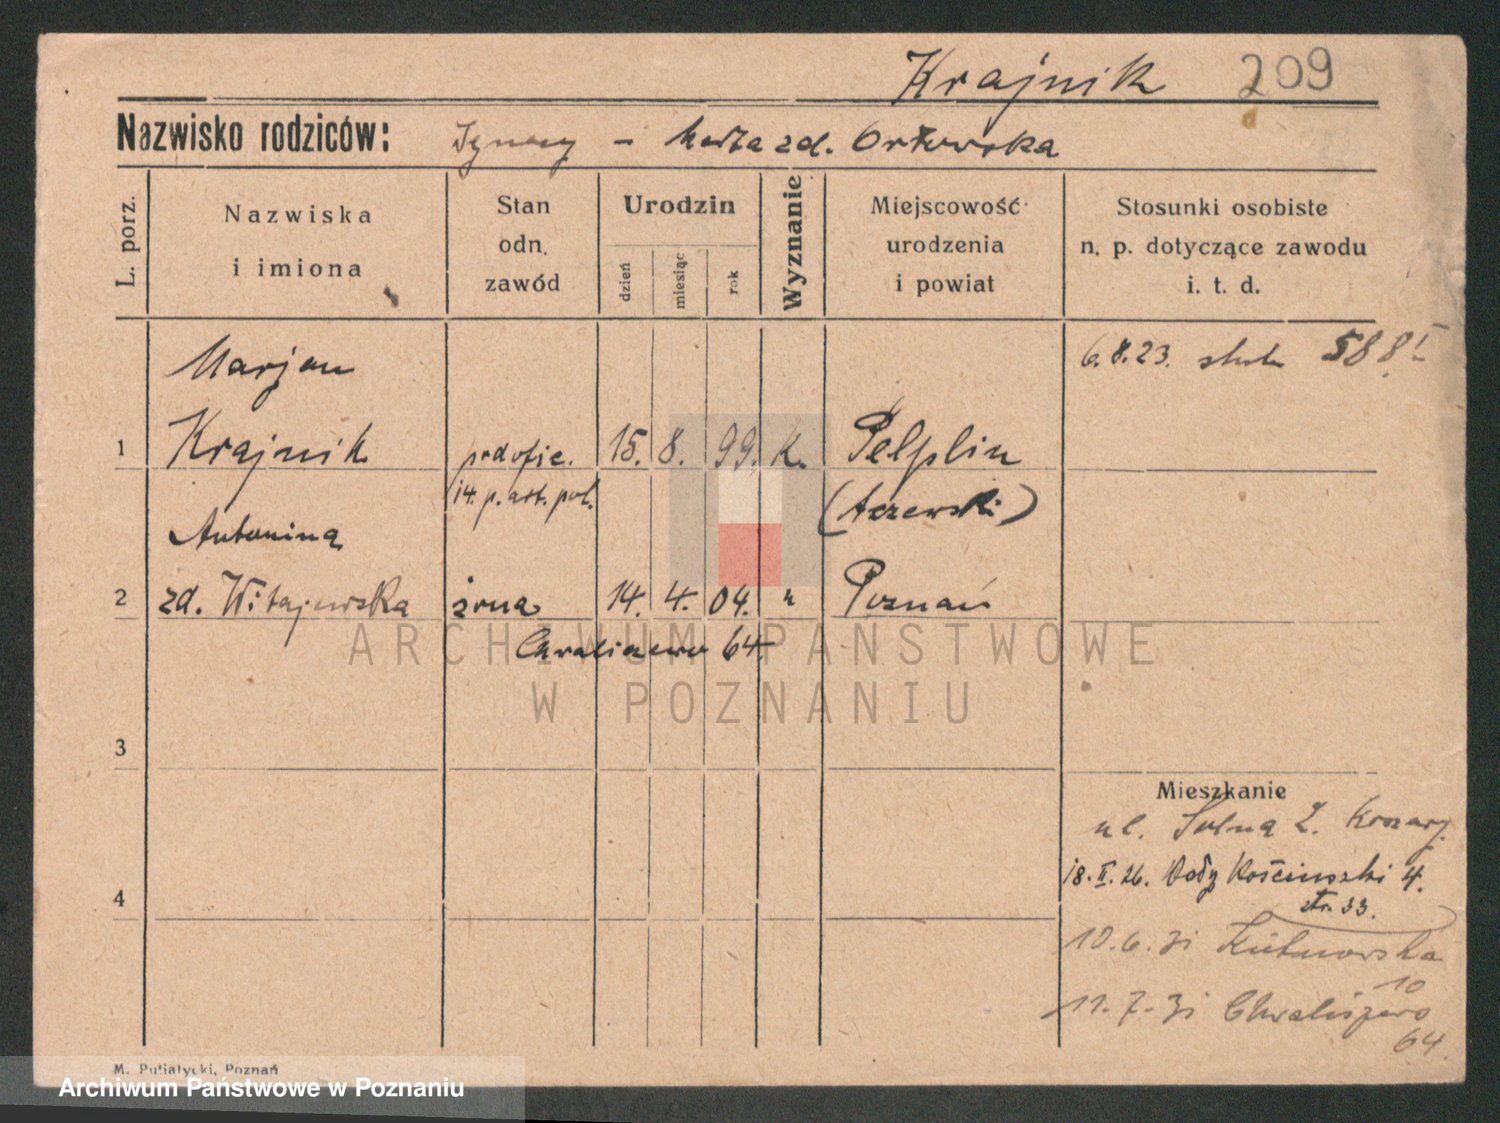 Krajnik 209
Nazwisko rodziców: Ignacy – zd. Orłowska
L. porz.
Nazwiska i imiona
Stan odn. zawód
Urodzin
dzień miesiąc rok
Wyznanie
Miejscowość urodzenia i powiat
Stosunki osobiste n. p. dotyczące zawodu i. t. d.
Marjan
6.8.23. 588
1 Krajnik podofic. 15. 8. 99. K. Pelplin
14. p. art. pol. (tczewski)
Antonina
2 zd. Witajewska żona 14. 4. 04. " Poznań
Chwaliszewo 64
3
Mieszkanie
ul. Solna 2. Koszary
18.II.26. Kościuszki 4.
4
33.
10.6.31 Kutnowska
10
11.7.31 Chwaliszewo
64.
M. Putiatycki, Poznań
ARCHIWUM PAŃSTWOWE
W POZNANIU
Archiwum Państwowe w Poznaniu